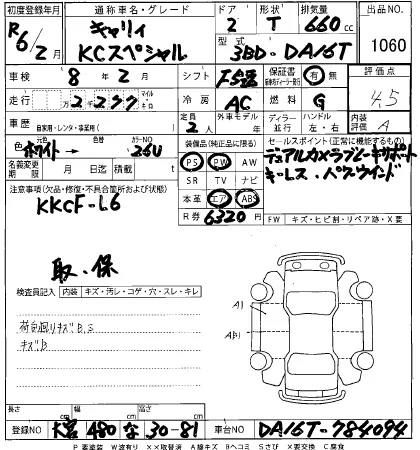 初度登録年月 通称車名・グレード ドア 形状 排気量 出品NO
R6/2月 キャリイ KCスペシャル 2 T 660cc 1060
型式 3BD-DA16T
車検 8年2月 シフト 保証書 有 無 評価点
走行 万2,277 マイル キロ 冷房 AC 燃料 G 4.5
車歴 自家用・レンタ・事業用( ) 定員 2人 外車モデル 年 ディーラー 並行 ハンドル 左・右 内装評価 A
色 元色 ホワイト → カラーNO 26U 装備品(純正品に限る) セールスポイント(正常に機能するもの)
PS PW AW デュアルカメラブレーキサポート
名義変更期限 月 日迄 積載 t SR TV ナビ キーレス・パワーウインド
注意事項(欠品・修復・不具合箇所および状態) 本革 エア ABS
KKCF-L6 R券 6320円 FW キズ・ヒビ割・リペア跡・X要
取・保
検査員記入 内装 キズ・汚レ・コゲ・穴・スレ・キレ
荷台廻りキズB,S
キズB
A1
長さ cm 幅 cm 高さ cm
登録NO 480 な 30-81 車台NO DA16T-784094
P 要塗装 W波有り ××取替済 A線キズ Bヘコミ Sさび X要交換 C腐食